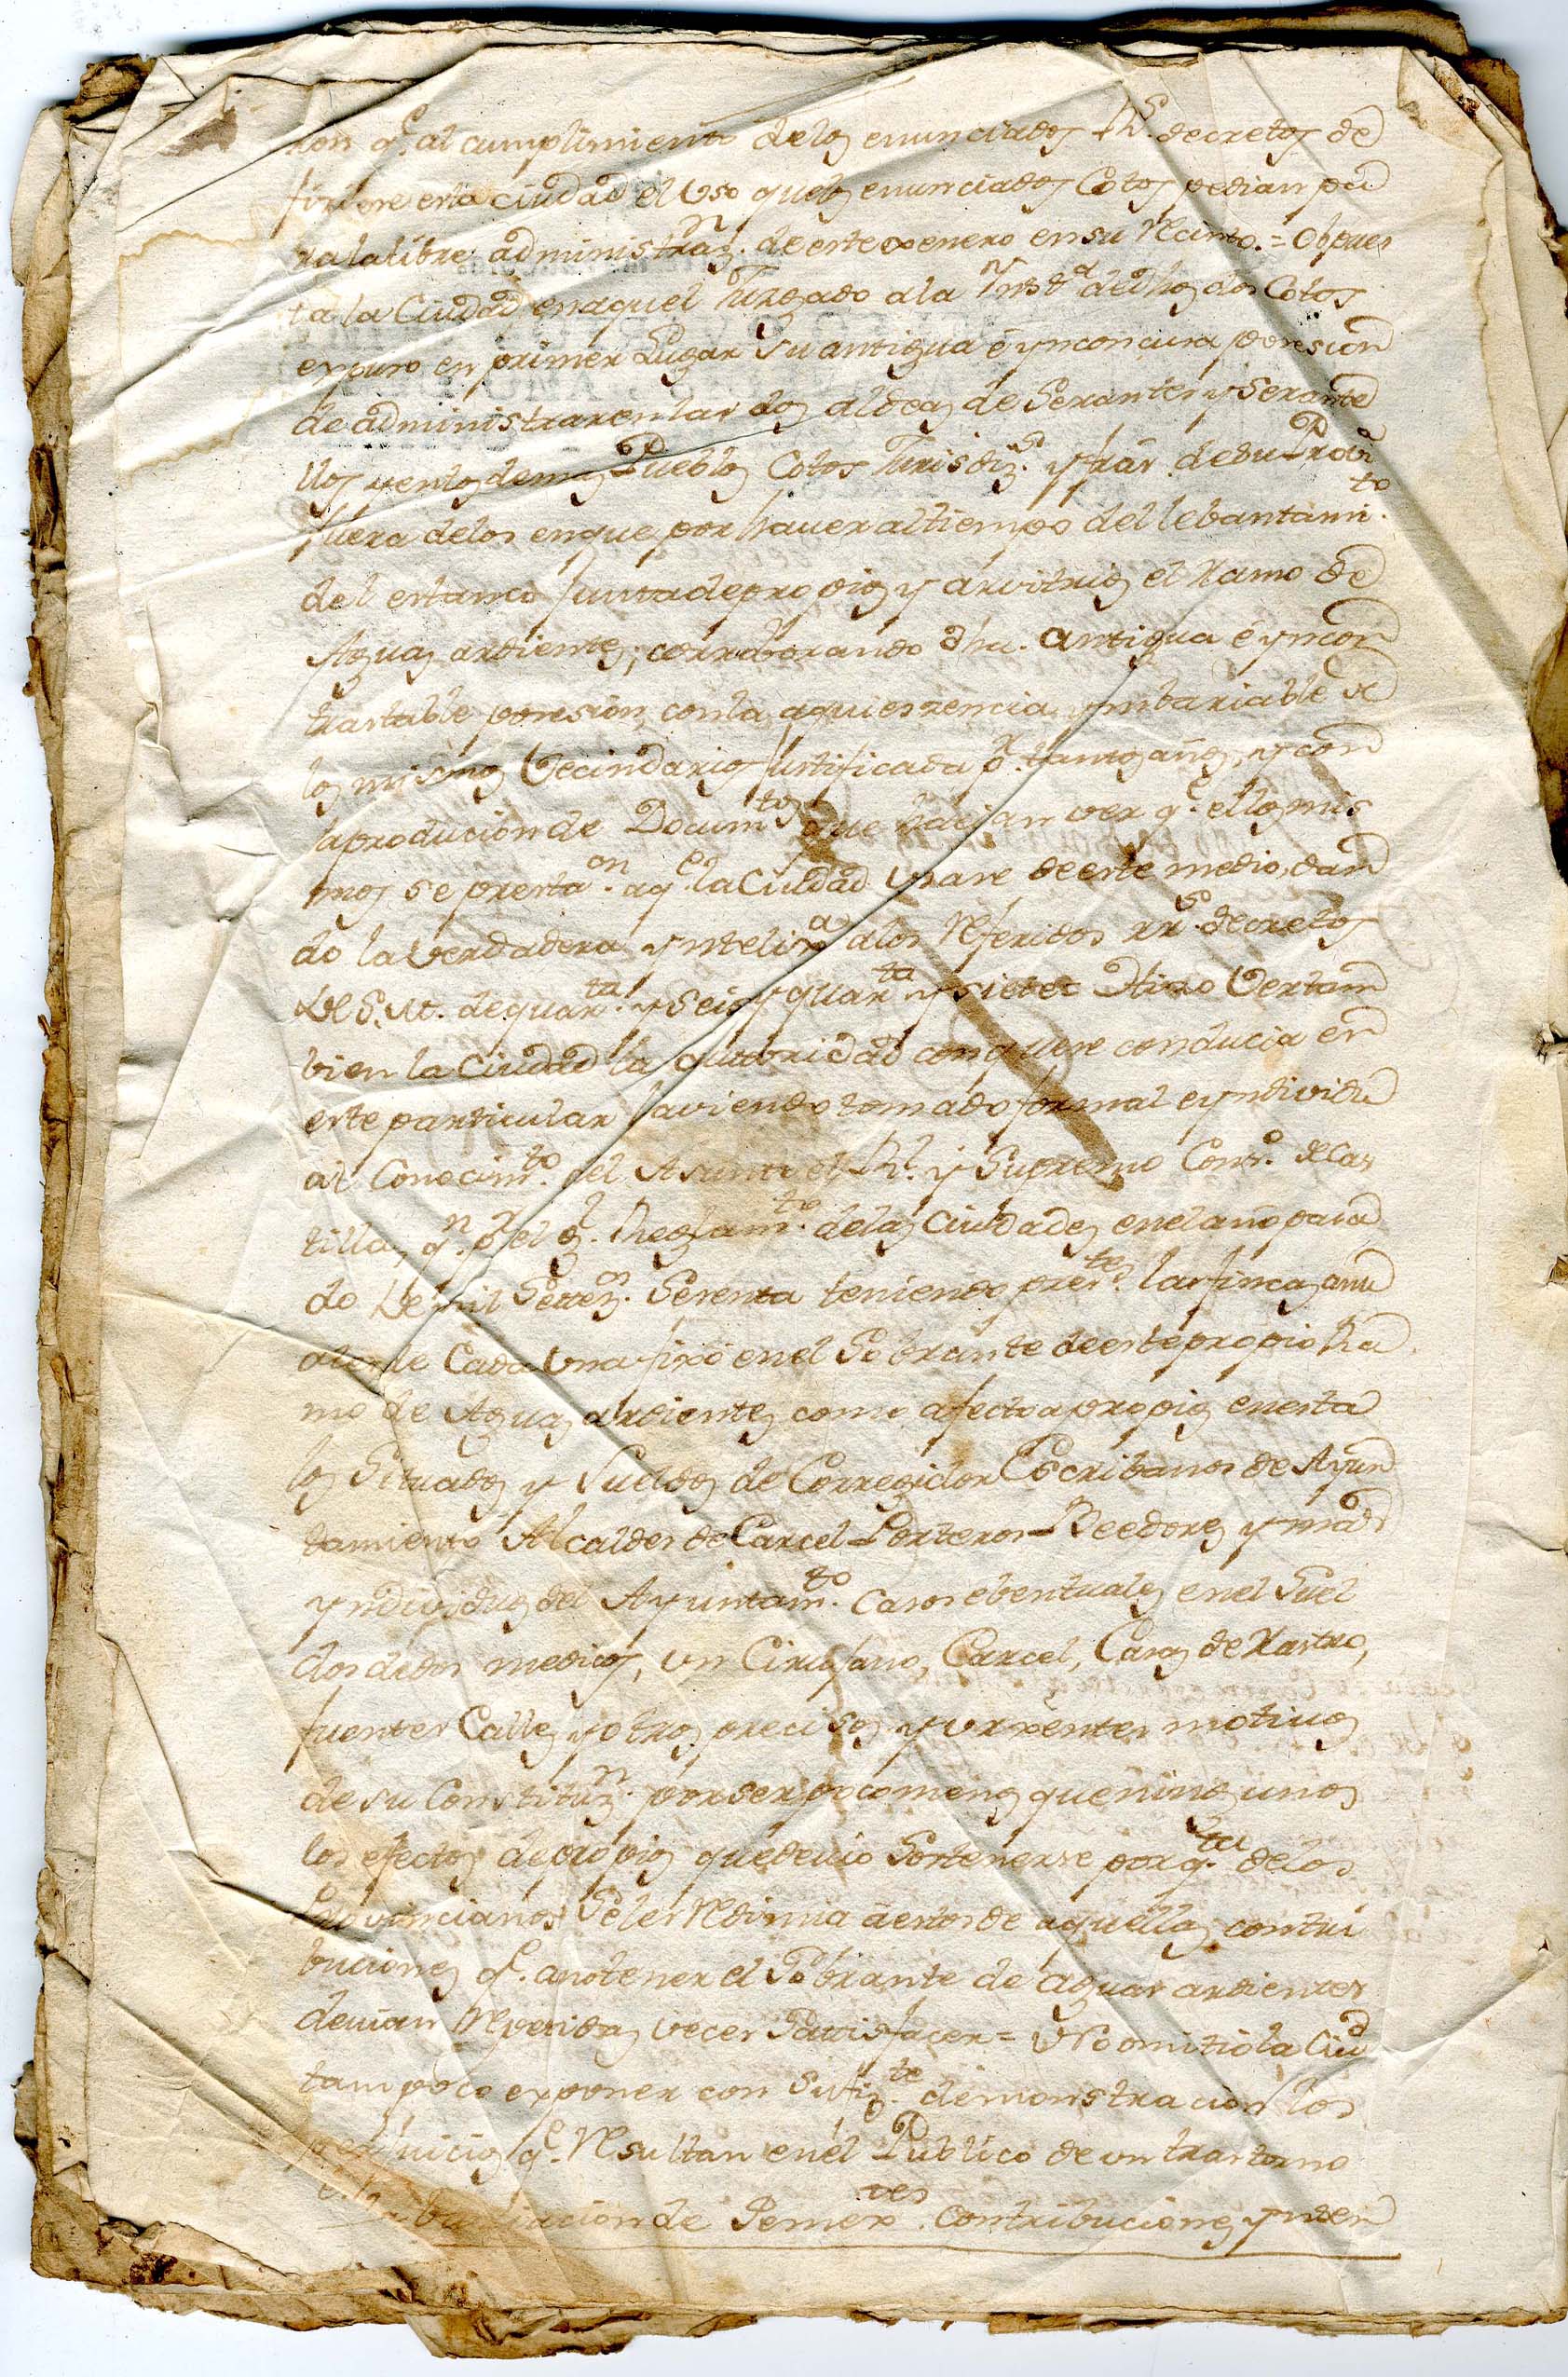 con q.e al cumplimiento delos enunciados R.s decretos de
firiere esta ciudad el Uso quelos enunciados Cotos pedian pa
ra la libre administraz.n de este xenero en su Recinto. = Opues
ta la Ciudad en aquel Juzgado a la Inst.a de dhos dos Cotos
expuso en primer Lugar su antigua é ynconcusa posesion
de administrar en las dos aldeas de Serantes y Serante
llos y en los demas Pueblos Cotos Jurisdiz.s y frās de su Prov.a
fuera de los en que por haver al tiempo del lebantami.to
del estanco Junta de propios y arvitrios el Ramo de
Aguas ardientes; corroborando dha. antigua é yncon
trastable posesion, con la aquiescencia ymbariable de
los mismos Vecindarios Justificada p.r tantos años, y con
la producion de Docum.tos que dejan ver q.e ellos mis
mos se presta.on aq.e la Ciudad Usase de este medio, dan
do la verdadera ynteli.a a los Referidos RR.s decretos
de S. M. de quar.ta y seis y quar.ta y siete = Hizo Ver tam
vien la Ciudad la autoridad con que se conducia en
este particular haviendo tomado formal e yndividu
al Conocim.to del Asunto el R.l y Supremo Cons.o de Cas
tilla, q.n p.r el g.l Reglam.to de las Ciudades en el año pasa
do de mil Settez.os Sesenta teniendo pres.tes las fincas anu
ales de Cada Una fixó en el Sobrante de este propio Ra
mo de Aguas ardientes como afecto a propios en esta
los Situados y Sueldos de Corregidor Escribanos de Ayun
tamiento Alcaldes de Carcel Porteros Beedores y mas
yndividuos del Ayuntam.to Casos ebentuales en el Suel
dos de dos medicos, un Cirujano, Carcel, Casas de Rastro,
fuentes Calles y otros precisos y urxentes motivos
de su Constituz.n por ser poco menos que ningunos
los efectos de propios que devio Sostenerse por q.ta de los
Provincianos Se les Redimia a estos de aquellas contri
buciones q.e a no tener el Sobrante de aguas ardientes
devian Repetidas veces Sattisfacer = No omitio la Ciu.d
tampoco exponer con sufiz.te demonstracion los
perjuicios q.e Resultan en el Publico de un trastorno
bariacion de Semex.ves contribuciones y nden